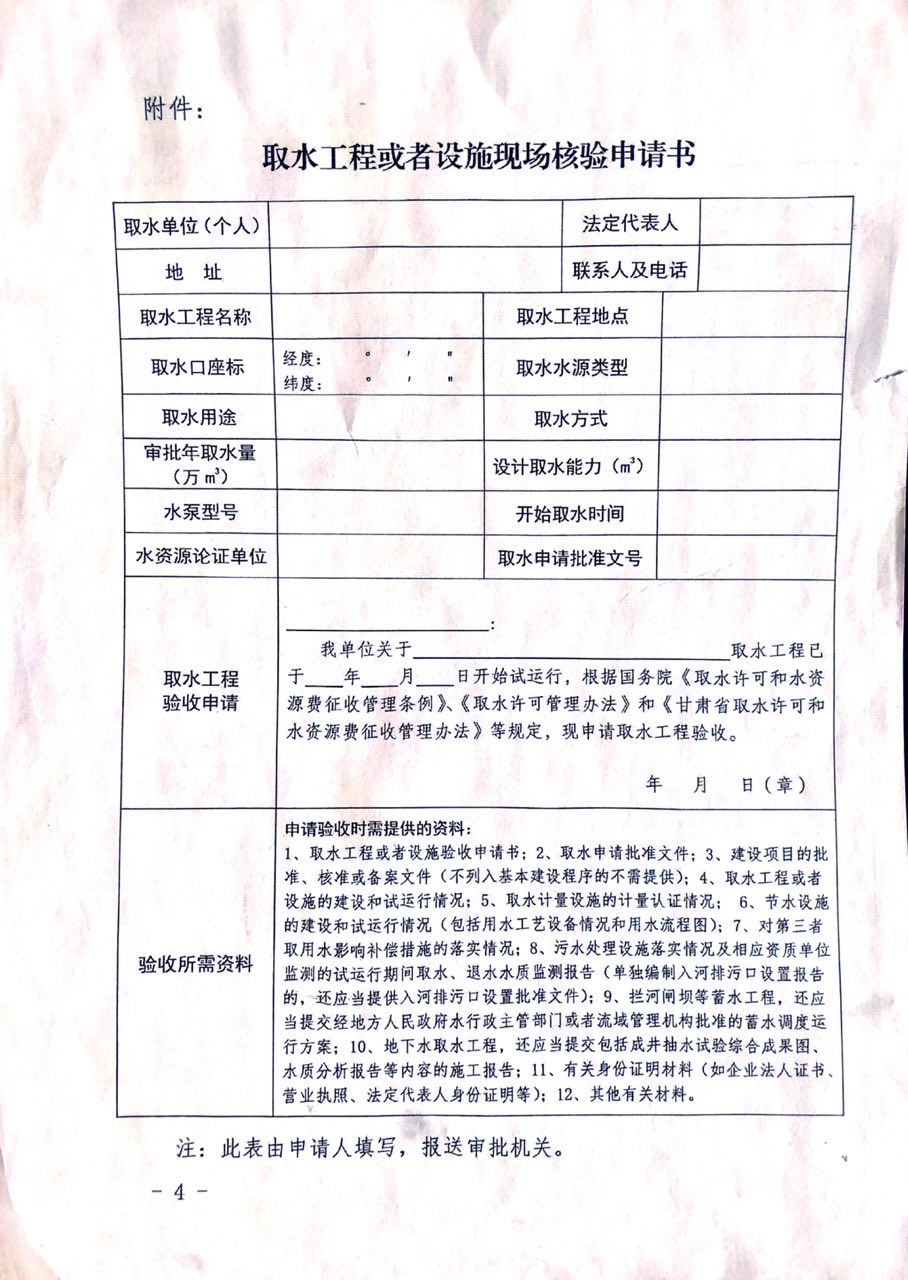 附件：
取水工程或者设施现场核验申请书
取水单位（个人） 法定代表人
地 址 联系人及电话
取水工程名称 取水工程地点
取水口座标 经度： ° ′ ″ 取水水源类型
纬度： ° ′ ″
取水用途 取水方式
审批年取水量 设计取水能力（m³）
（万 m³）
水泵型号 开始取水时间
水资源论证单位 取水申请批准文号
取水工程
验收申请
____________________：
我单位关于______________________________取水工程已
于____年____月____日开始试运行，根据国务院《取水许可和水资
源费征收管理条例》、《取水许可管理办法》和《甘肃省取水许可和
水资源费征收管理办法》等规定，现申请取水工程验收。
年 月 日（章）
验收所需资料
申请验收时需提供的资料：
1、取水工程或者设施验收申请书；2、取水申请批准文件；3、建设项目的批
准、核准或备案文件（不列入基本建设程序的不需提供）；4、取水工程或者
设施的建设和试运行情况；5、取水计量设施的计量认证情况； 6、节水设施
的建设和试运行情况（包括用水工艺设备情况和用水流程图）；7、对第三者
取用水影响补偿措施的落实情况；8、污水处理设施落实情况及相应资质单位
监测的试运行期间取水、退水水质监测报告（单独编制入河排污口设置报告
的，还应当提供入河排污口设置批准文件）；9、拦河闸坝等蓄水工程，还应
当提交经地方人民政府水行政主管部门或者流域管理机构批准的蓄水调度运
行方案；10、地下水取水工程，还应当提交包括成井抽水试验综合成果图、
水质分析报告等内容的施工报告；11、有关身份证明材料（如企业法人证书、
营业执照、法定代表人身份证明等）；12、其他有关材料。
注：此表由申请人填写，报送审批机关。
- 4 -